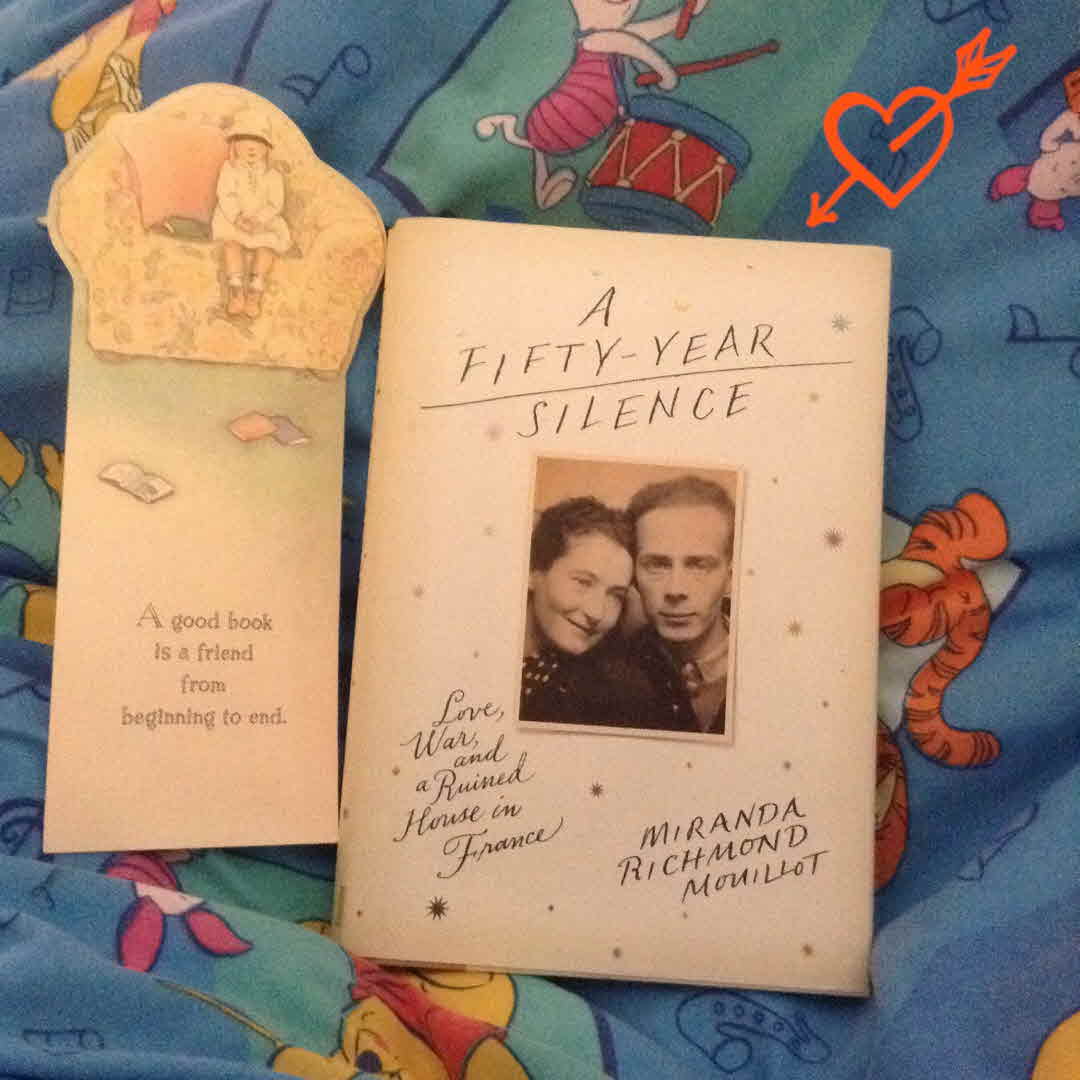 A good book
is a friend
from
beginning to end.
A
FIFTY-YEAR
SILENCE
Love,
War,
and
a Ruined
House in
France
MIRANDA
RICHMOND
MOUILLOT